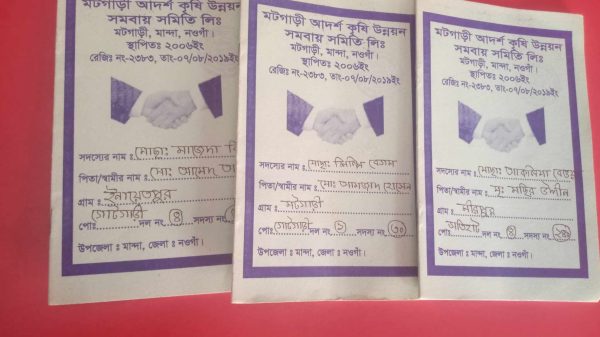 মটগাড়ী আদর্শ কৃষি উন্নয়ন
সমবায় সমিতি লিঃ
মটগাড়ী, মান্দা, নওগাঁ।
স্থাপিতঃ ২০০৬ইং
রেজিঃ নং-২৩৮৩, তাং-০৭/০৮/২০১৯ইং
সদস্যের নাম ঃ মোছাঃ মাজেদা বি
পিতা/স্বামীর নাম ঃ মোঃ আমেদ আ
গ্রাম ঃ ইনায়েতপুর
পোঃ গোটগাড়ী দল নং ৪ সদস্য নং
উপজেলা ঃ মান্দা, জেলা ঃ নওগাঁ।
মটগাড়ী আদর্শ কৃষি উন্নয়ন
সমবায় সমিতি লিঃ
মটগাড়ী, মান্দা, নওগাঁ।
স্থাপিতঃ ২০০৬ইং
রেজিঃ নং-২৩৮৩, তাং-০৭/০৮/২০১৯ইং
সদস্যের নাম ঃ মোছাঃ শিল্পি বেগম
পিতা/স্বামীর নাম ঃ মোঃ আমজাদ হোসেন
গ্রাম ঃ মটগাড়ী
পোঃ গোটগাড়ী দল নং ১ সদস্য নং ৩০
উপজেলা ঃ মান্দা, জেলা ঃ নওগাঁ।
মটগাড়ী আদর্শ কৃষি উন্নয়ন
সমবায় সমিতি লিঃ
মটগাড়ী, মান্দা, নওগাঁ।
স্থাপিতঃ ২০০৬ইং
রেজিঃ নং-২৩৮৩, তাং-০৭/০৮/২০১৯ইং
সদস্যের নাম ঃ মোছাঃ
পিতা/স্বামীর নাম ঃ মৃঃ
গ্রাম ঃ
পোঃ দল নং সদস্য নং
উপজেলা ঃ মান্দা, জেলা ঃ নওগাঁ।